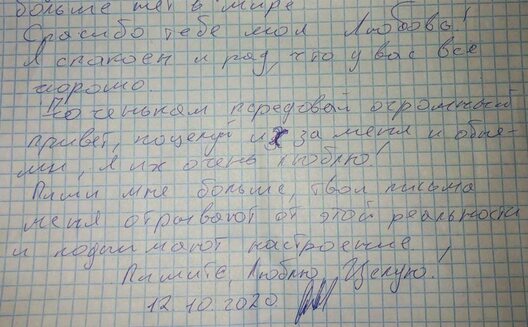 больше нет в мире
Спасибо тебе моя Любовь!
Я спокоен и рад, что у вас все
хорошо.
Доченькам передавай огромный
привет, поцелуй их за меня и обни-
ми, я их очень люблю!
Пиши мне больше, твои письма
меня отрывают от этой реальности
и поднимают настроение
Пишите, Люблю, Целую!
12.10.2020